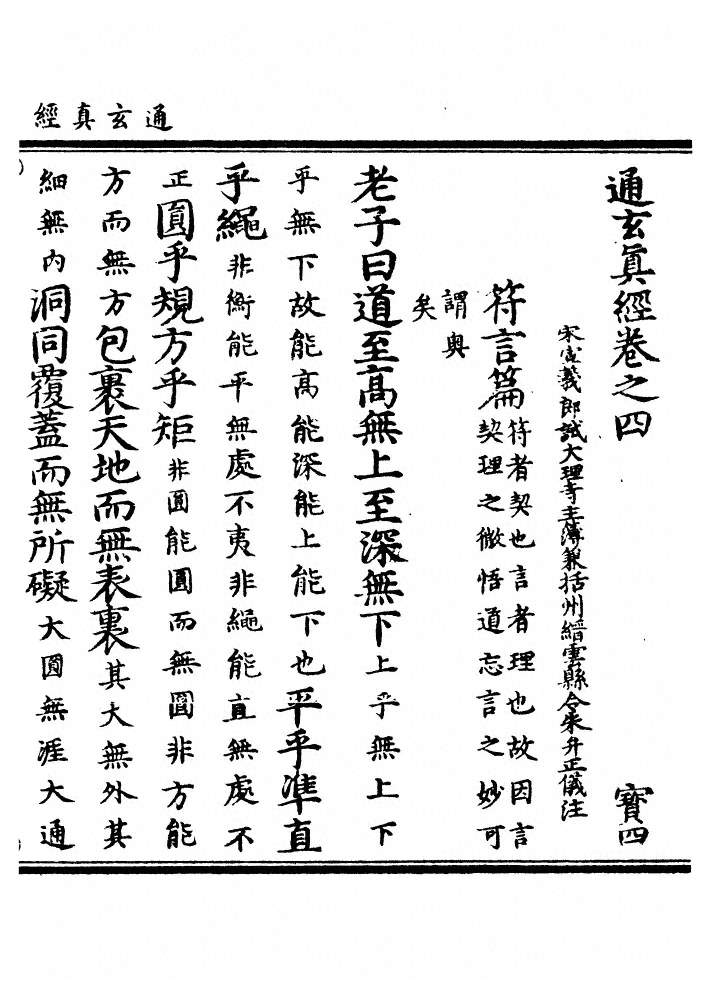 通玄真經
通玄眞經卷之四 寳四
宋宣義郎試大理寺主薄兼括州縉雲縣令朱弁正儀注
符言篇符者契也言者理也故因言
契理之微悟道忘言之妙可
謂奥
矣
老子曰道至高無上至深無下上乎無上下
乎無下故能高能深能上能下也平乎準直
乎繩非衡能平無處不夷非繩能直無處不
正圓乎規方乎矩非圓能圓而無圓非方能
方而無方包裹天地而無表裏其大無外其
細無内洞同覆蓋而無所礙大圓無涯大通